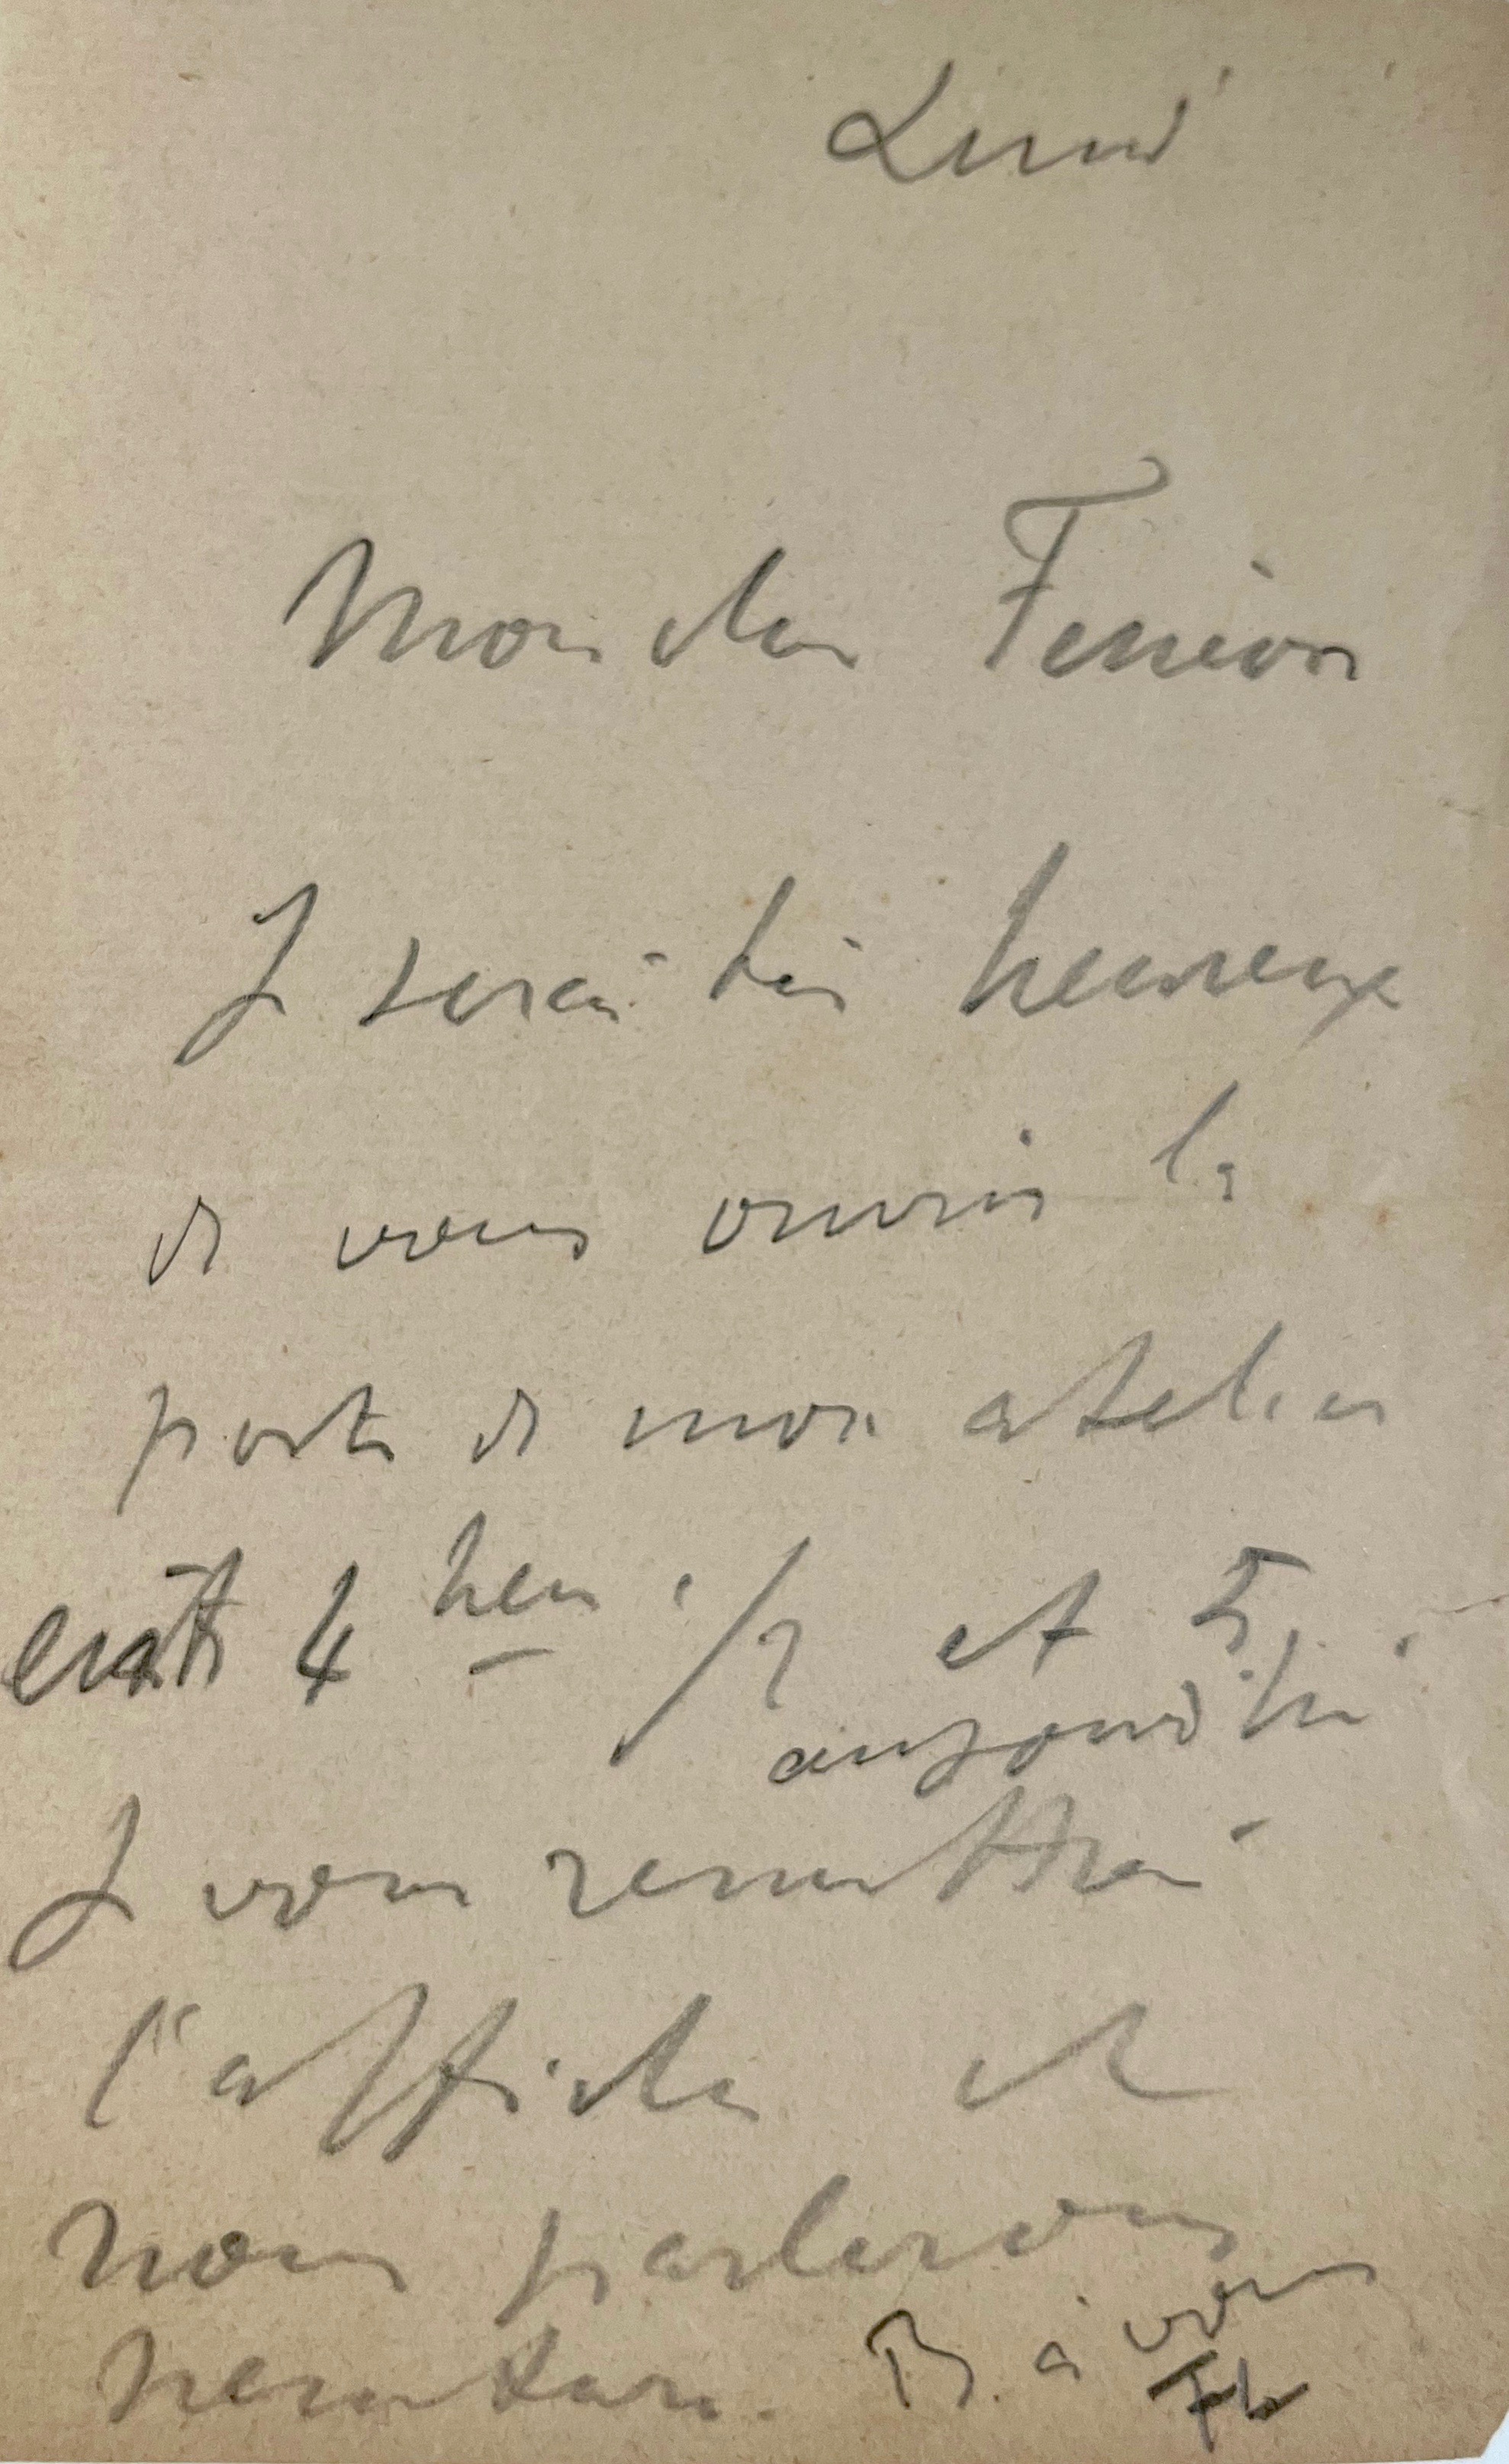 Lundi
Mon cher Fénéon
Je serai très heureux
de vous ouvrir la
porte de mon atelier
entre 4 heu 1/2 et 5
aujourd'hui
Je vous remettrai
l'affiche et
nous parlerons
B. à vous